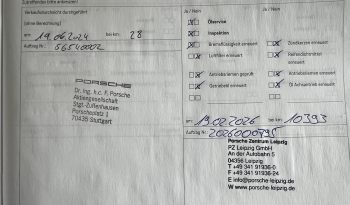 Zutreffendes bitte ankreuzen!
Verkaufsdurchsicht durchgeführt
(ohne Berechnung)
am 19.06.2024 bei km 28
Auftrag Nr. 56540002
PORSCHE
Dr. Ing. h.c. F. Porsche
Aktiengesellschaft
Stgt.-Zuffenhausen
Porscheplatz 1
70435 Stuttgart
Ja / Nein
Ölservice
Inspektion
Bremsflüssigkeit erneuert
Luftfilter erneuert
Antriebsriemen geprüft
Getriebeöl erneuert
Ja / Nein
Zündkerzen erneuert
Reifendichtmittel
erneuert
Antriebsriemen erneuert
Öl Achsantrieb erneuert
am 19.02.2026 bei km 10393
Auftrag Nr. 2026000795
Porsche Zentrum Leipzig
PZ Leipzig GmbH
An der Autobahn 5
04356 Leipzig
T +49 341 91936-0
F +49 341 91936-24
E info@porsche-leipzig.de
W www.porsche-leipzig.de